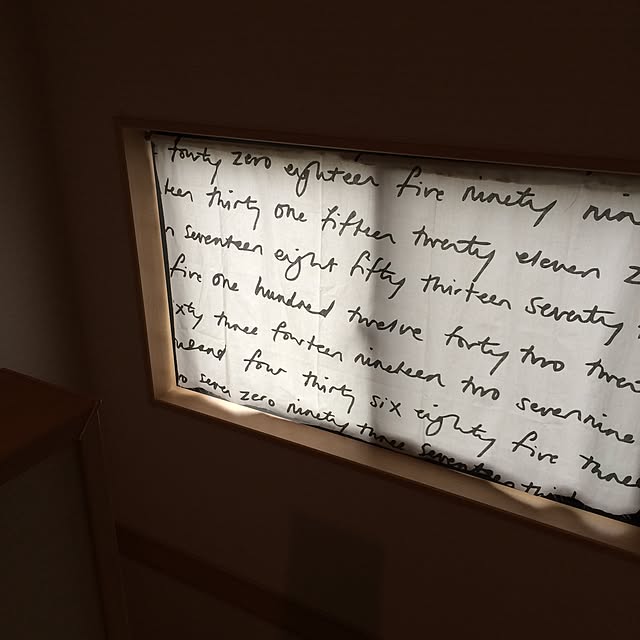 fourty zero eighteen five ninety nin
teen thirty one fifteen twenty eleven z
n seventeen eight fifty thirteen seventy
five one hundred twelve forty two twen
ixty three fourteen nineteen two seven nine
four thirty six eighty five three
o seven zero ninety three seventeen thi